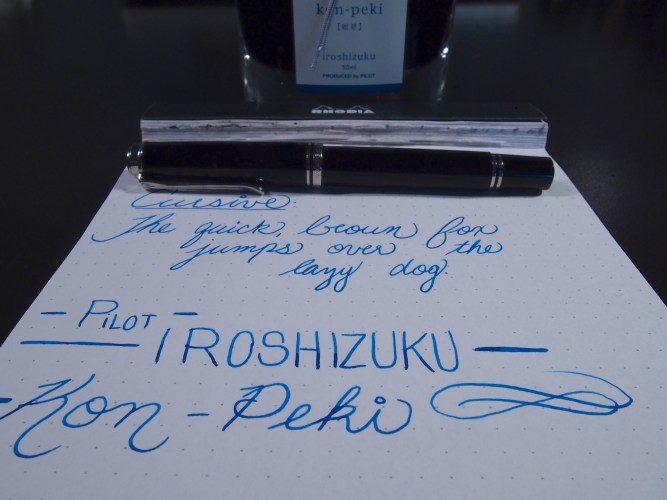 kon-peki
【紺碧】
iroshizuku
50ml
PRODUCED by PILOT
RHODIA
Cursive:
The quick, brown fox
jumps over the
lazy dog.
- PILOT -
IROSHIZUKU —
Kon-Peki